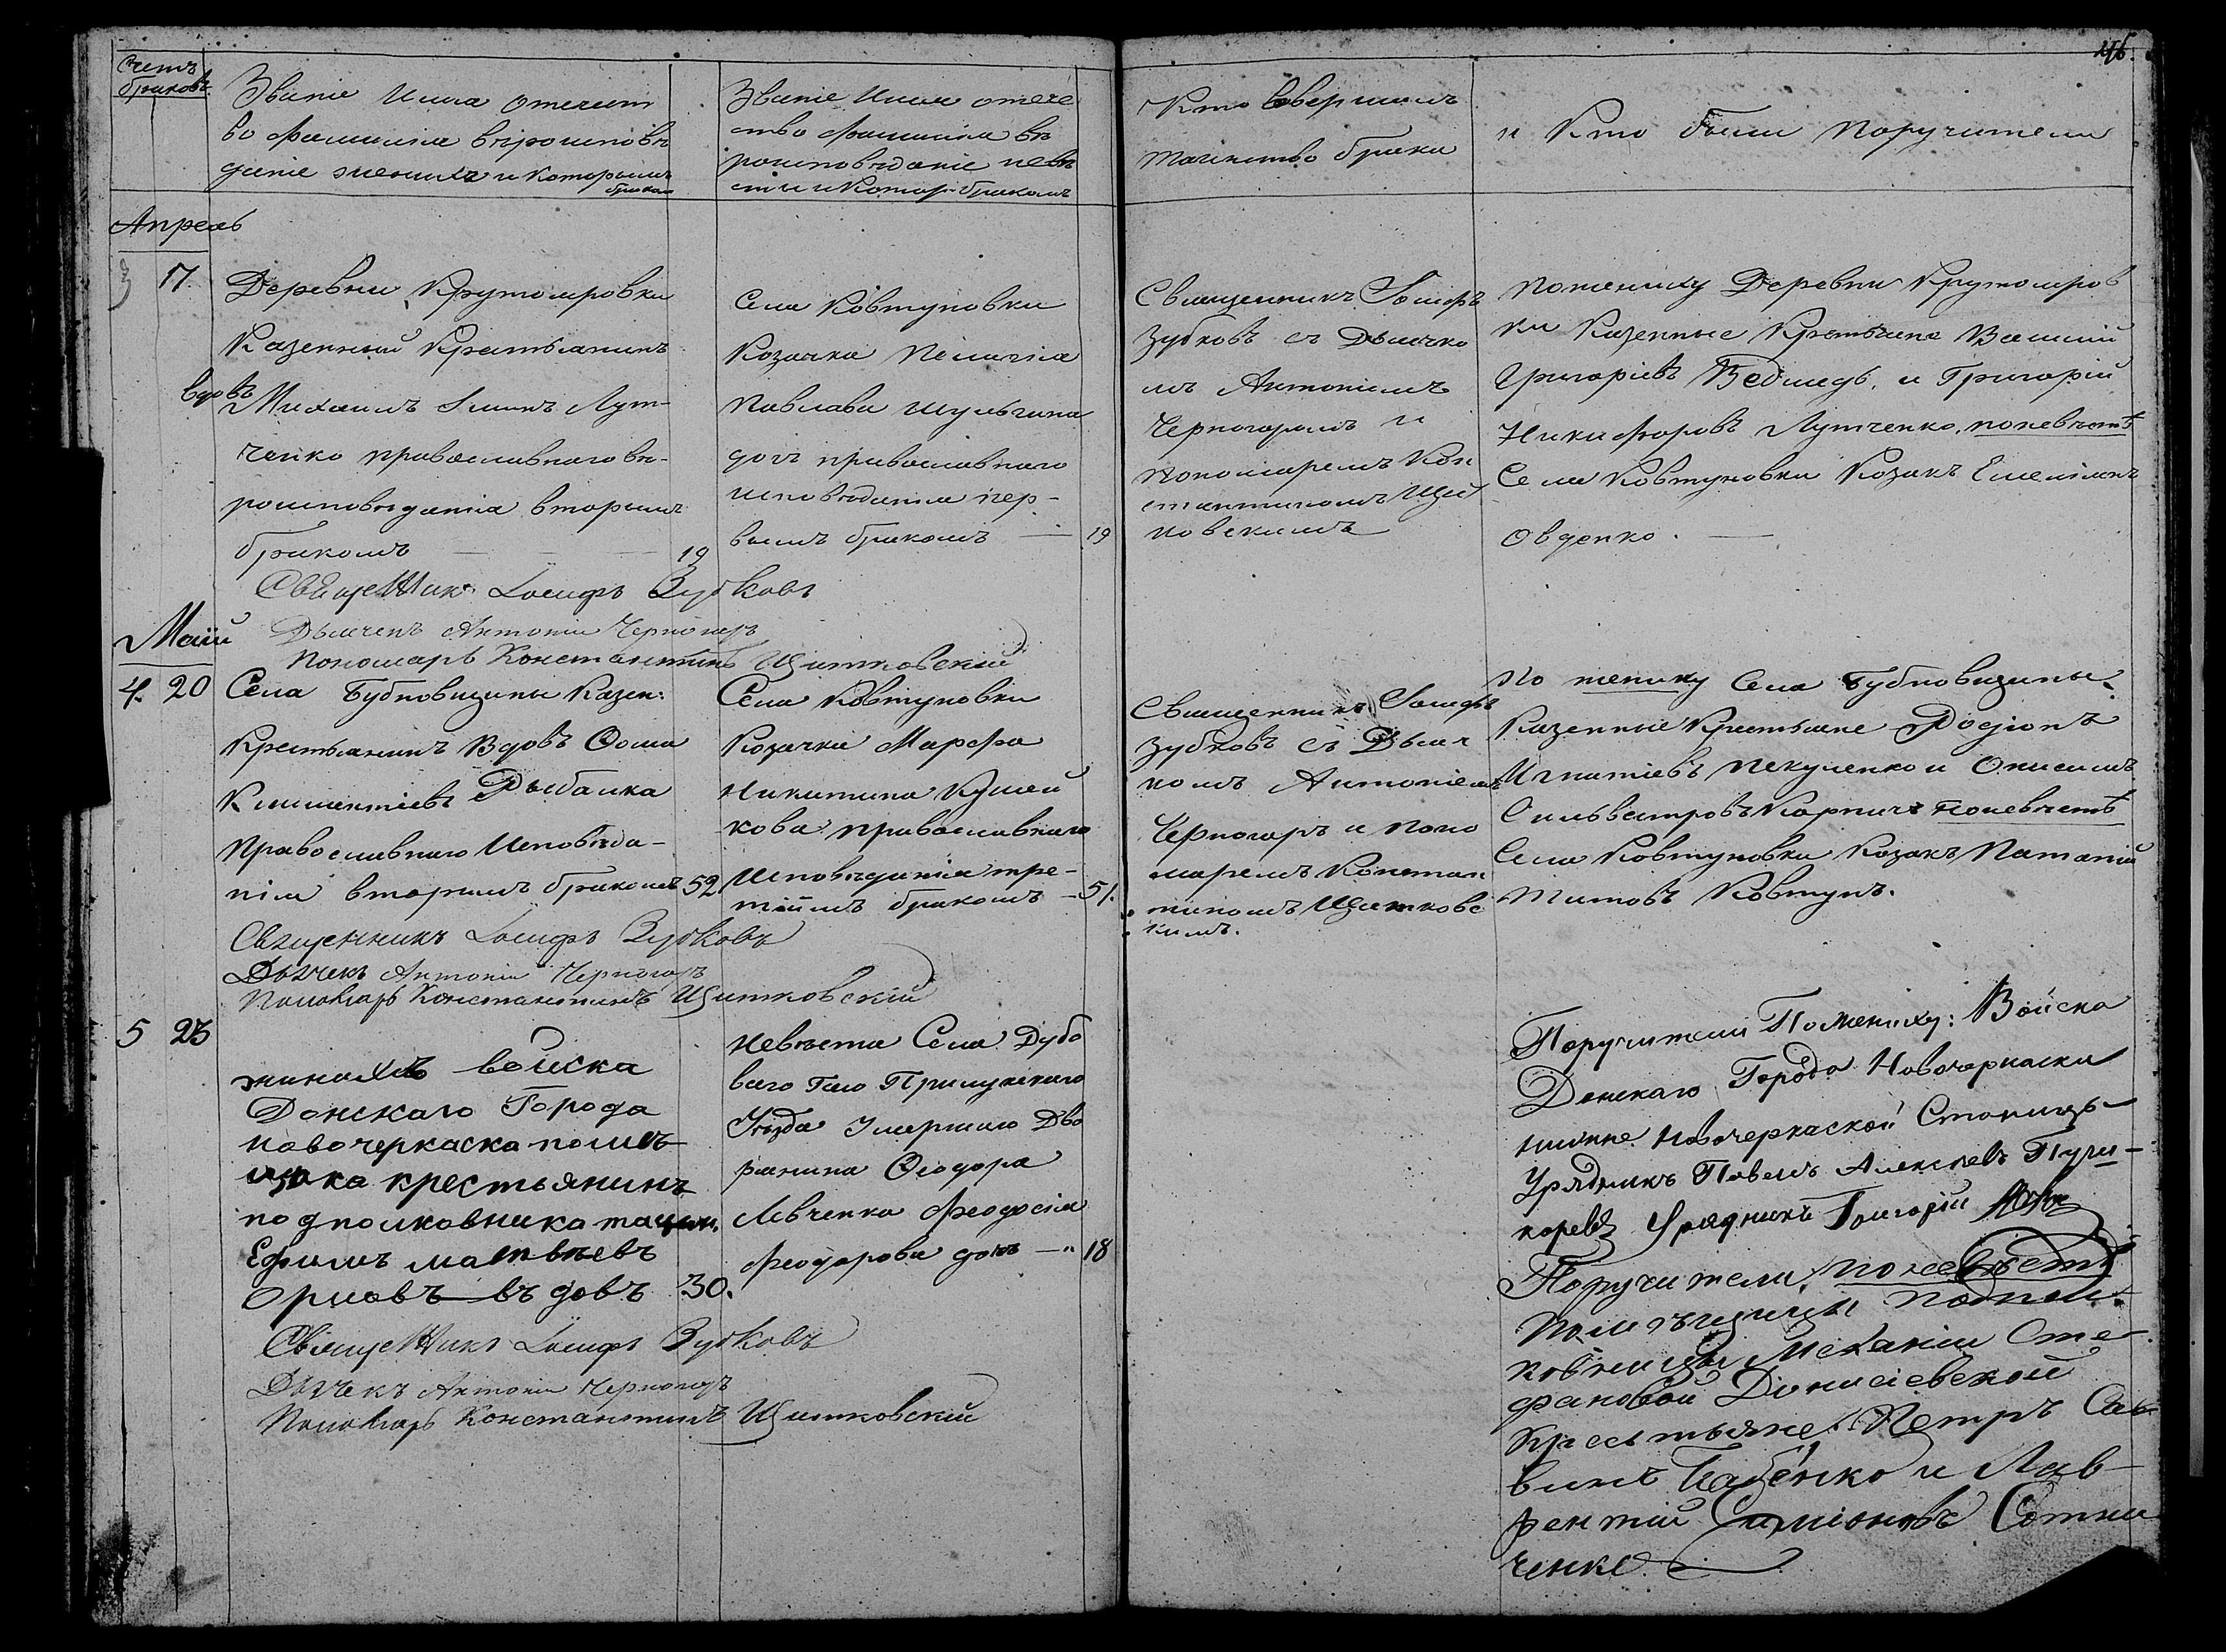 Счетъ
браковъ
Званіе Имя отечест
во Фамилія вѣроисповѣ
даніе жениха и которымъ
бракомъ
Званіе Имя отече
ство Фамилія вѣ
роисповѣданіе невѣ
сти и Котор. бракомъ
Кто Совершалъ
таинство брака
и Кто были поручители
Апрель
3 17.
Деревни Крутояровки
Казенный Крестьянинъ
вдовъ Михаилъ Лут-
ченко православнаго вѣ-
роисповѣданія вторымъ
бракомъ 19
Села Ковтуновки
Козачка Пелагіа
Павлова Шульгина
дочь православнаго
исповѣданія пер-
вымъ бракомъ — 19
Священникъ Іосифъ
Зубковъ съ Дьячко
мъ Антоніемъ
Черногоромъ и
пономаремъ Кон
стантиномъ Щит
ковскимъ
по жениху Деревни Крутояров
ки Казенные Крестьяне Василій
Григоріевъ Ведмедь, и Григорій
Никифоровъ Лутченко, по невѣстѣ
Села Ковтуновки Козакъ Емеліянъ
Овденко.
Священникъ Іосифъ Зубковъ
Дьячекъ Антоній Черногоръ
Пономарь Константинъ Щитковскій
Маій
4. 20
Села Бубновщины Казен:
Крестьянинъ Вдовъ Фома
Климентіевъ Рыбалка
Православнаго Исповѣда-
нія вторымъ бракомъ 52
Села Ковтуновки
Козачка Марфа
Никитина
кова православнаго
Исповѣданія тре-
тіимъ бракомъ — 51.
Священникъ Іосифъ
Зубковъ съ Дьяч
комъ Антоніемъ
Черногоръ и поно
маремъ Констан
тиномъ Щитковс
кимъ.
По жениху Села Бубновщины
Казенные Крестьяне Родіонъ
Игнатіевъ Пекуленко и Онисимъ
Сильвестровъ Карпичъ по невѣстѣ
Села Ковтуновки Козакъ Патапій
Титовъ Ковтунъ.
Священникъ Іосифъ Зубковъ
Дьячекъ Антоній Черногоръ
Пономарь Константинъ Щитковскій
5 23
жинихъ войска
Донскаго Города
новочеркаска помѣ
щика крестьянинъ
подполковника
Ефимъ матвѣевъ
Орловъ въдовъ 30.
Невѣста Села Дубо
ваго Гаю Прилуцкаго
Уѣзда Умершаго Дво
рянина Феодора
Левченка Феодосія
Феодорова дочь — 18
Поручители По Жениху: Войска
Донскаго Города Новочеркаска
Новочеркаской Станицы
Урядникъ Павелъ Алексѣевъ
Урядникъ Григорій
Поручители, по невѣстѣ
Помѣщицы подпол-
ковницы Меланіи Сте
фановой Донисіевской
Крестьяне: Петръ Сав
винъ Бабенко и Лав
рентій Симіоновъ Сотни
ченко.
Священникъ Іосифъ Зубковъ
Дьячекъ Антоній Черногоръ
Пономарь Константинъ Щитковскій